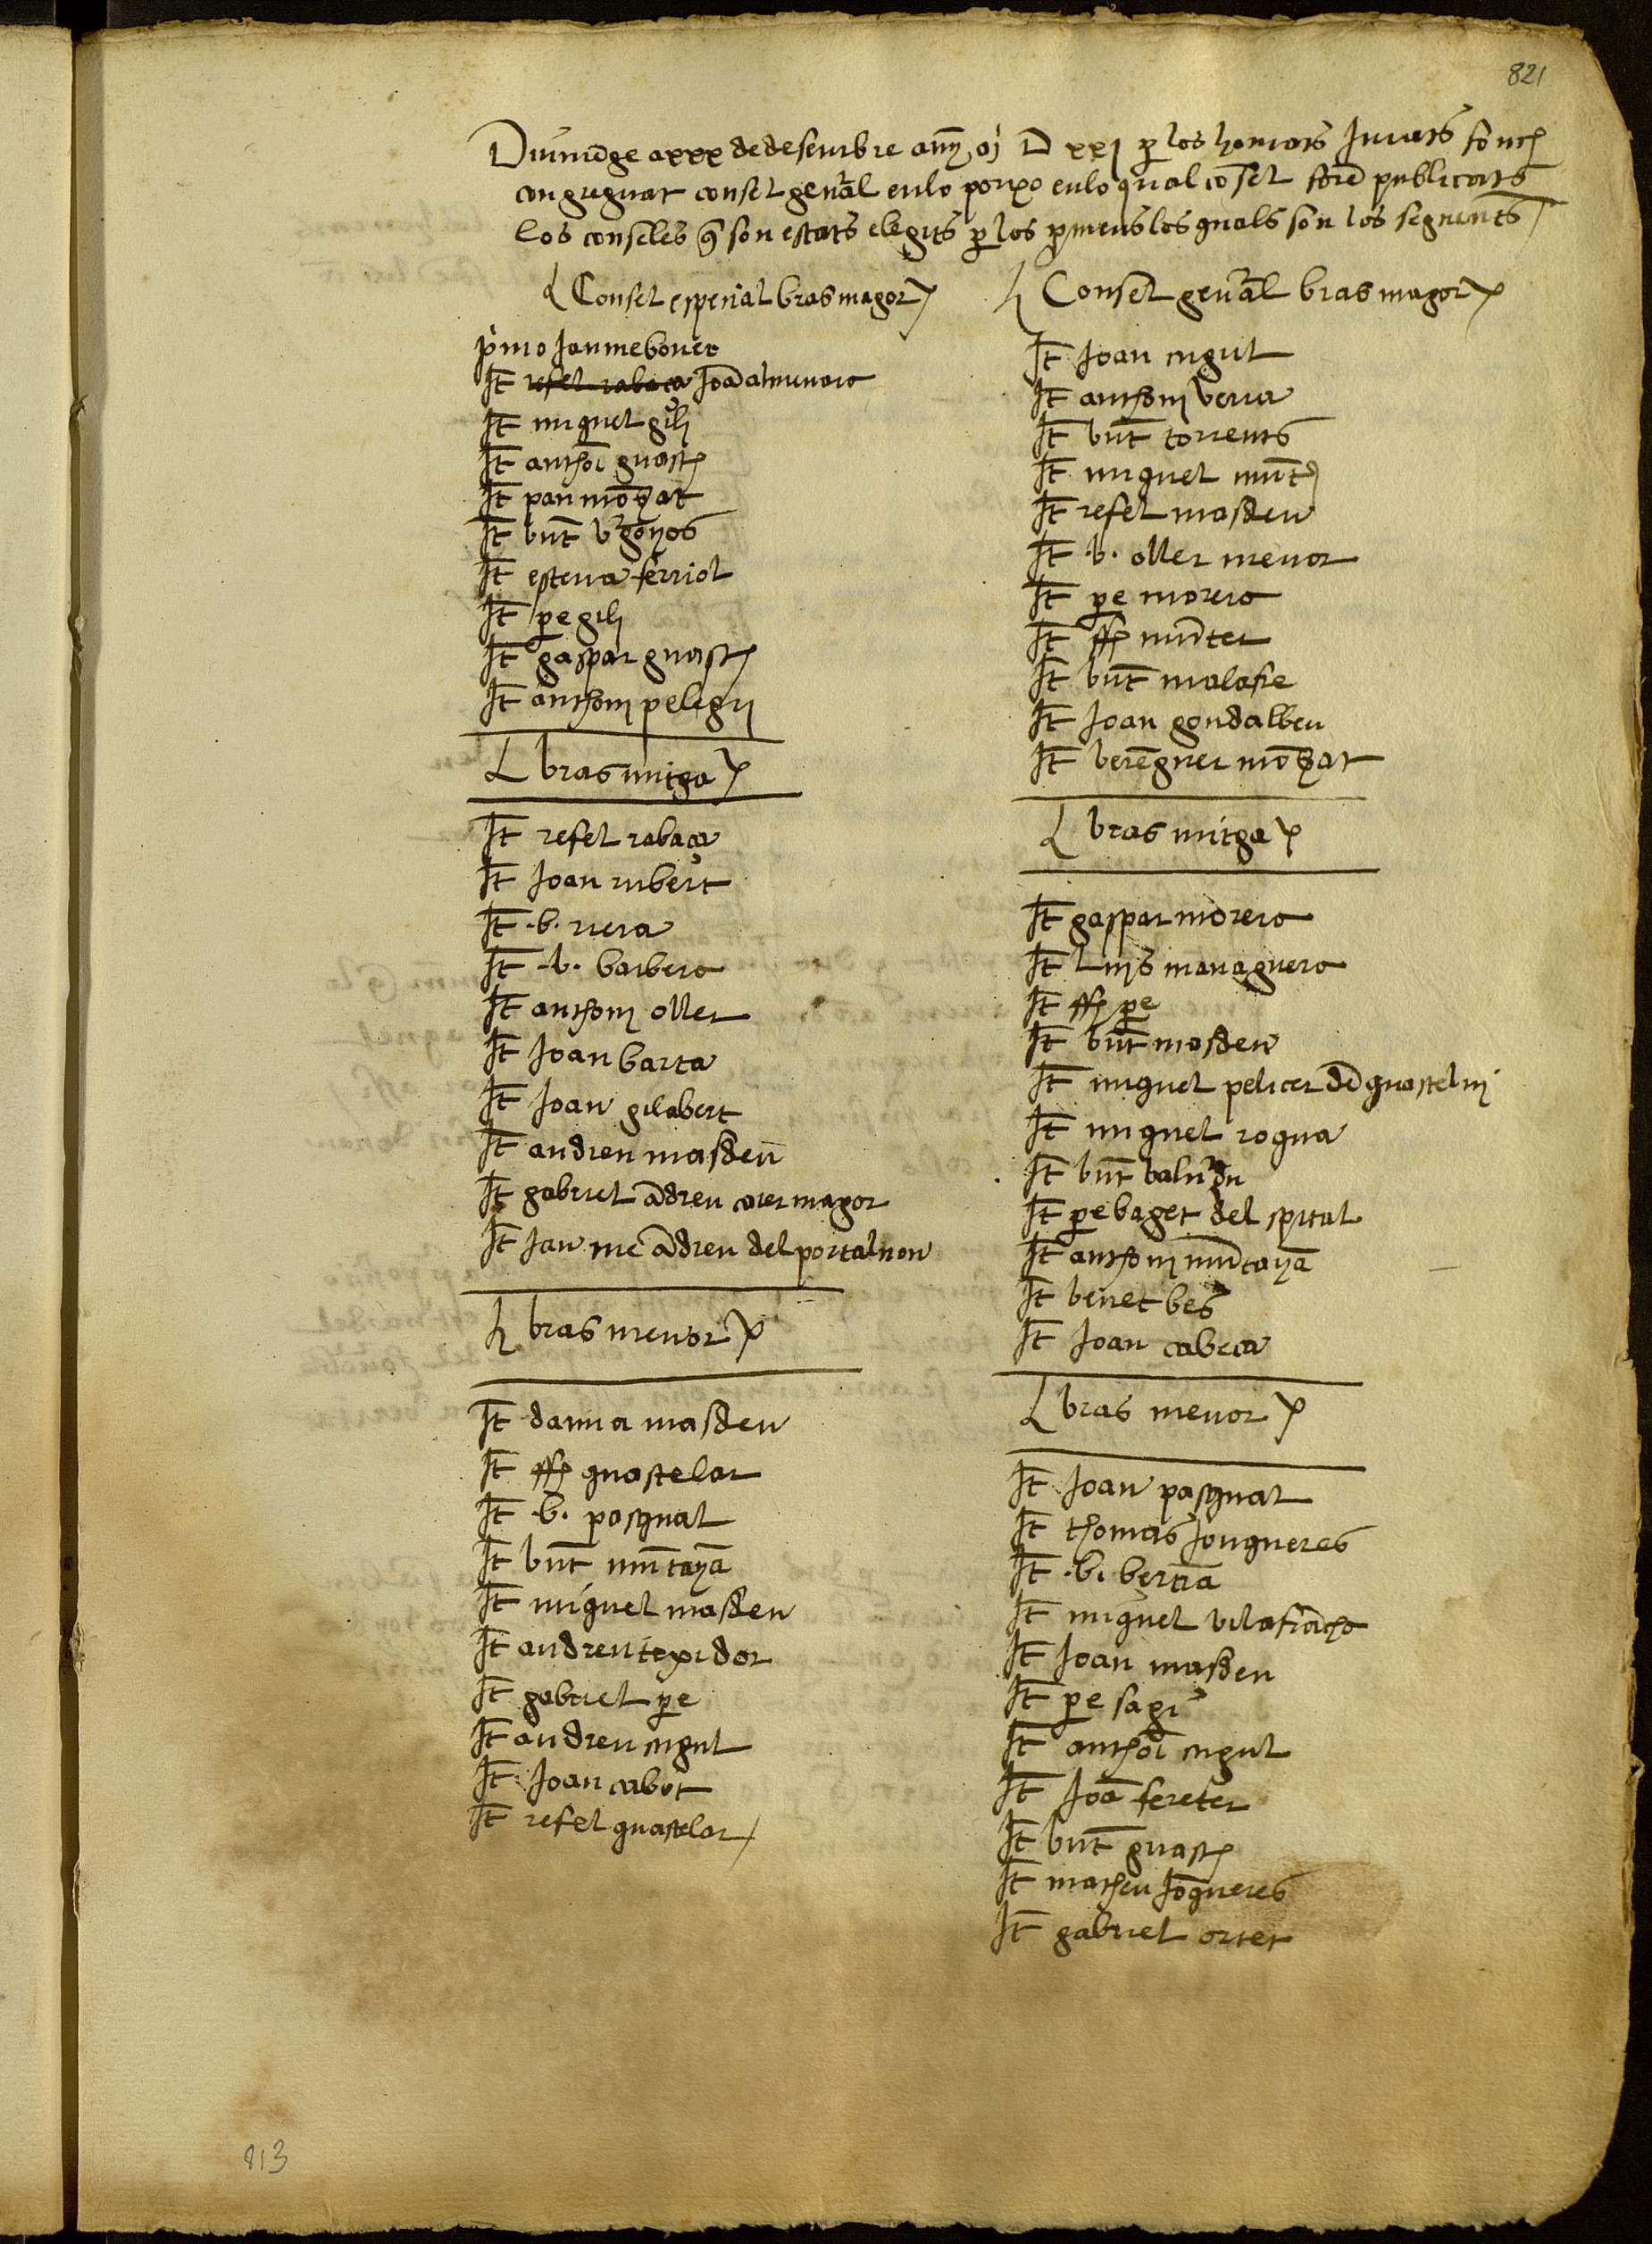 821
Diumēge a xxx de desembre any mj D xxj p los honrats Jurats fonch
congreguat consel general en lo porxo en lo qual cōsel forē publicats
los conseles q̄ son estats elegits p los promens los quals son los seguents
Consel especial bras magor
pmo Jaume bover
It refel rabaça Joā almunara
It miquel gili
It anthoī guasch
It pau mōzat
It bnt vrgonyos
It esteva ferriol
It pe gili
It gaspar guasch
It anthoni pelegri
bras mitga
It refel rabaça
It Joan rubert
It .b. riera
It .b. barbera
It anthoni oller
It Joan barta
It Joan gilabert
It andreu masdeu
It gabriel ādreu carer magor
It Jaume ādreu del portal nou
bras menor
It damia masdeu
It ffi guastelar
It .b. pasqual
It bnt mūtayā
It miquel masdeu
It andreu texidor
It gabriel pe
It andreu cugul
It Joan cabot
It refel guastelar
Consel general bras magor
It Joan cugul
It anthoni veria
It bnt torrents
It miquel munt
It refel masdeu
It .b. oller menor
It pe morera
It ffi mūter
It bnt malafre
It Joan gondalbeu
It berēguer mōzat
bras mitga
It gaspar morera
It Luis managuera
It ffi pe
It bnt masdeu
It miquel pelicer de guastelvi
It miquel rogua
It bnt balnrdu
It pe baget del spital
It anthoni mūtayā
It benet bes
It Joan cabeca
bras menor
It Joan pasqual
It thomas Jonqueres
It .b. bertrā
It miquel vilafrācha
It Joan masdeu
It pe sagr
It anthoī cugul
It Joā fereter
It bnt guasch
It matheu Jōqueres
It gabriel ortet
813